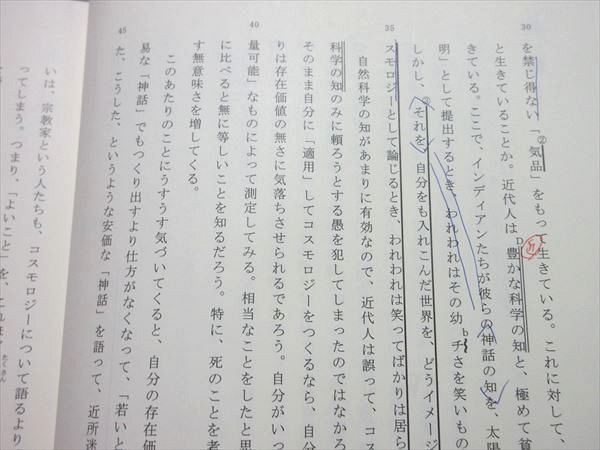 30
35
40
45
を禁じ得ない「②気品」をもって生きている。これに対して、
と生きていることか。近代人はD豊かな科学の知と、極めて貧
きている。ここで、インディアンたちが彼らの神話の知を、太陽
明」として提出するとき、われわれはその幼bチさを笑いもの
しかし、③それを、自分をも入れこんだ世界を、どうイメージ
スモロジーとして論じるとき、われわれは笑ってばかりは居ら
自然科学の知があまりに有効なので、近代人は誤って、コス
科学の知のみに頼ろうとする愚を犯してしまったのではなかろ
そのまま自分に「適用」してコスモロジーをつくるなら、自分
りは存在価値の無さに気落ちさせられるであろう。自分がいつ
量可能」なものによって測定してみる。相当なことをしたと思
に比べると無に等しいことを知るだろう。特に、死のことを考
す無意味さを増してくる。
このあたりのことにうすうす気づいてくると、自分の存在価
易な「神話」でもつくり出すより仕方がなくなって、「若いと
た、こうした、というような安価な「神話」を語って、近所迷
いは、宗教家という人たちも、コスモロジーについて語るより
ってしまう。つまり、「よいこと」を、これほ
たくさん